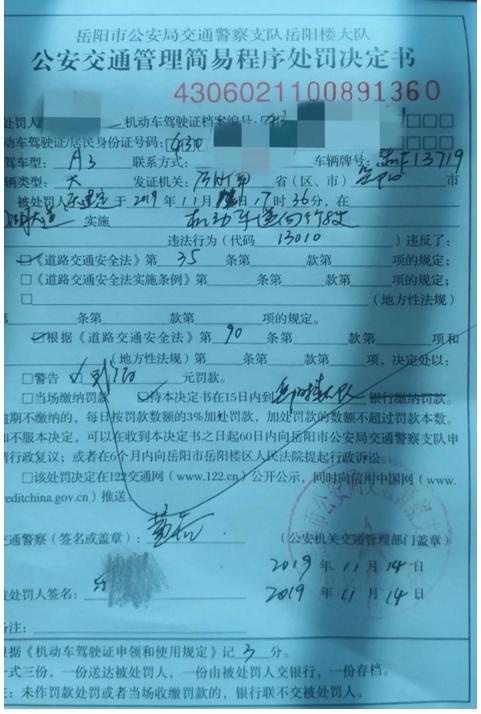 岳阳市公安局交通警察支队岳阳楼大队
公安交通管理简易程序处罚决定书
4306021100891360
处罚人 机动车驾驶证档案编号：43
动车驾驶证/居民身份证号码：430
驾车型：A3 联系方式： 车辆牌号：F13719
辆类型：大 发证机关：湖南 省（区、市）岳阳 市
被处罚人 于2019年11月 日17时36分，在
大道 实施 机动车逆向行驶
违法行为（代码 13010 ）违反了：
☑《道路交通安全法》第 35 条第 款第 项的规定；
□《道路交通安全法实施条例》第 条第 款第 项的规定；
□ （地方性法规）
第 条第 款第 项的规定。
☑根据《道路交通安全法》第 90 条第 款第 项和
（地方性法规）第 条第 款第 项，决定处以：
□警告 ☑ 元罚款。
□当场缴纳罚款 ☑持本决定书在15日内到 岳阳楼大队 银行缴纳罚款。
逾期不缴纳的，每日按罚款数额的3%加处罚款，加处罚款的数额不超过罚款本数。
如不服本决定，可以在收到本决定书之日起60日内向岳阳市公安局交通警察支队申
请行政复议；或者在6个月内向岳阳市岳阳楼区人民法院提起行政诉讼。
□该处罚决定在122交通网（www.122.cn）公开公示，同时向信用中国网（www.
creditchina.gov.cn）推送。
交通警察（签名或盖章）： （公安机关交通管理部门盖章）
2019年11月14日
被处罚人签名： 2019年11月14日
备注：
根据《机动车驾驶证申领和使用规定》记 3 分。
一式三份，一份送达被处罚人，一份由被处罚人交银行，一份存档。
注：未作罚款处罚或者当场收缴罚款的，银行联不交被处罚人。